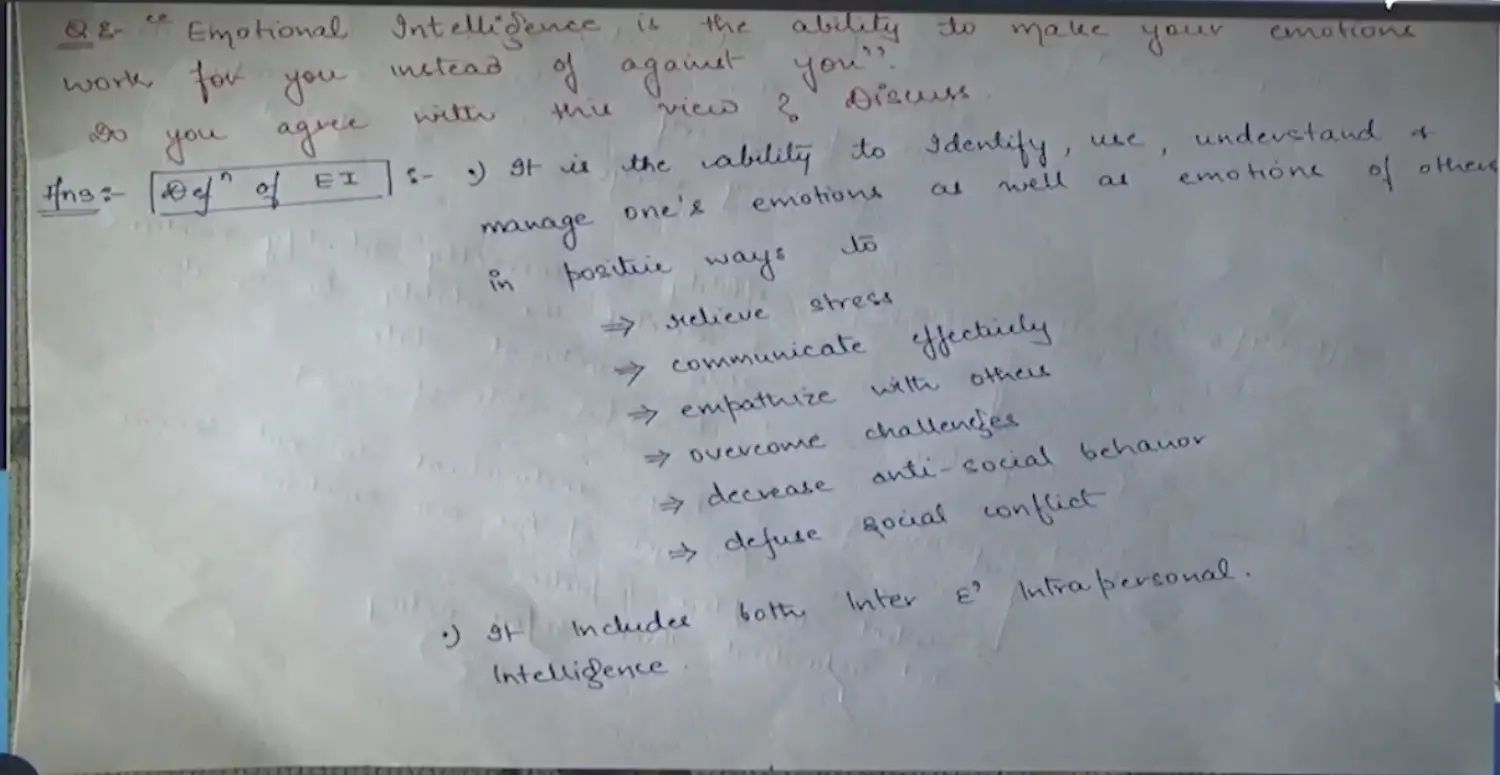 Q8- "Emotional Intelligence is the ability to make your emotions
work for you instead of against you".
Do you agree with this view? Discuss.
Ans:- Defⁿ of EI :- •) It is the ability to Identify, use, understand &
manage one's emotions as well as emotions of others
in positive ways to
⇒ relieve stress
⇒ communicate effectively
⇒ empathize with others
⇒ overcome challenges
⇒ decrease anti-social behavior
⇒ defuse social conflict
•) It Includes both Inter & Intrapersonal.
Intelligence.